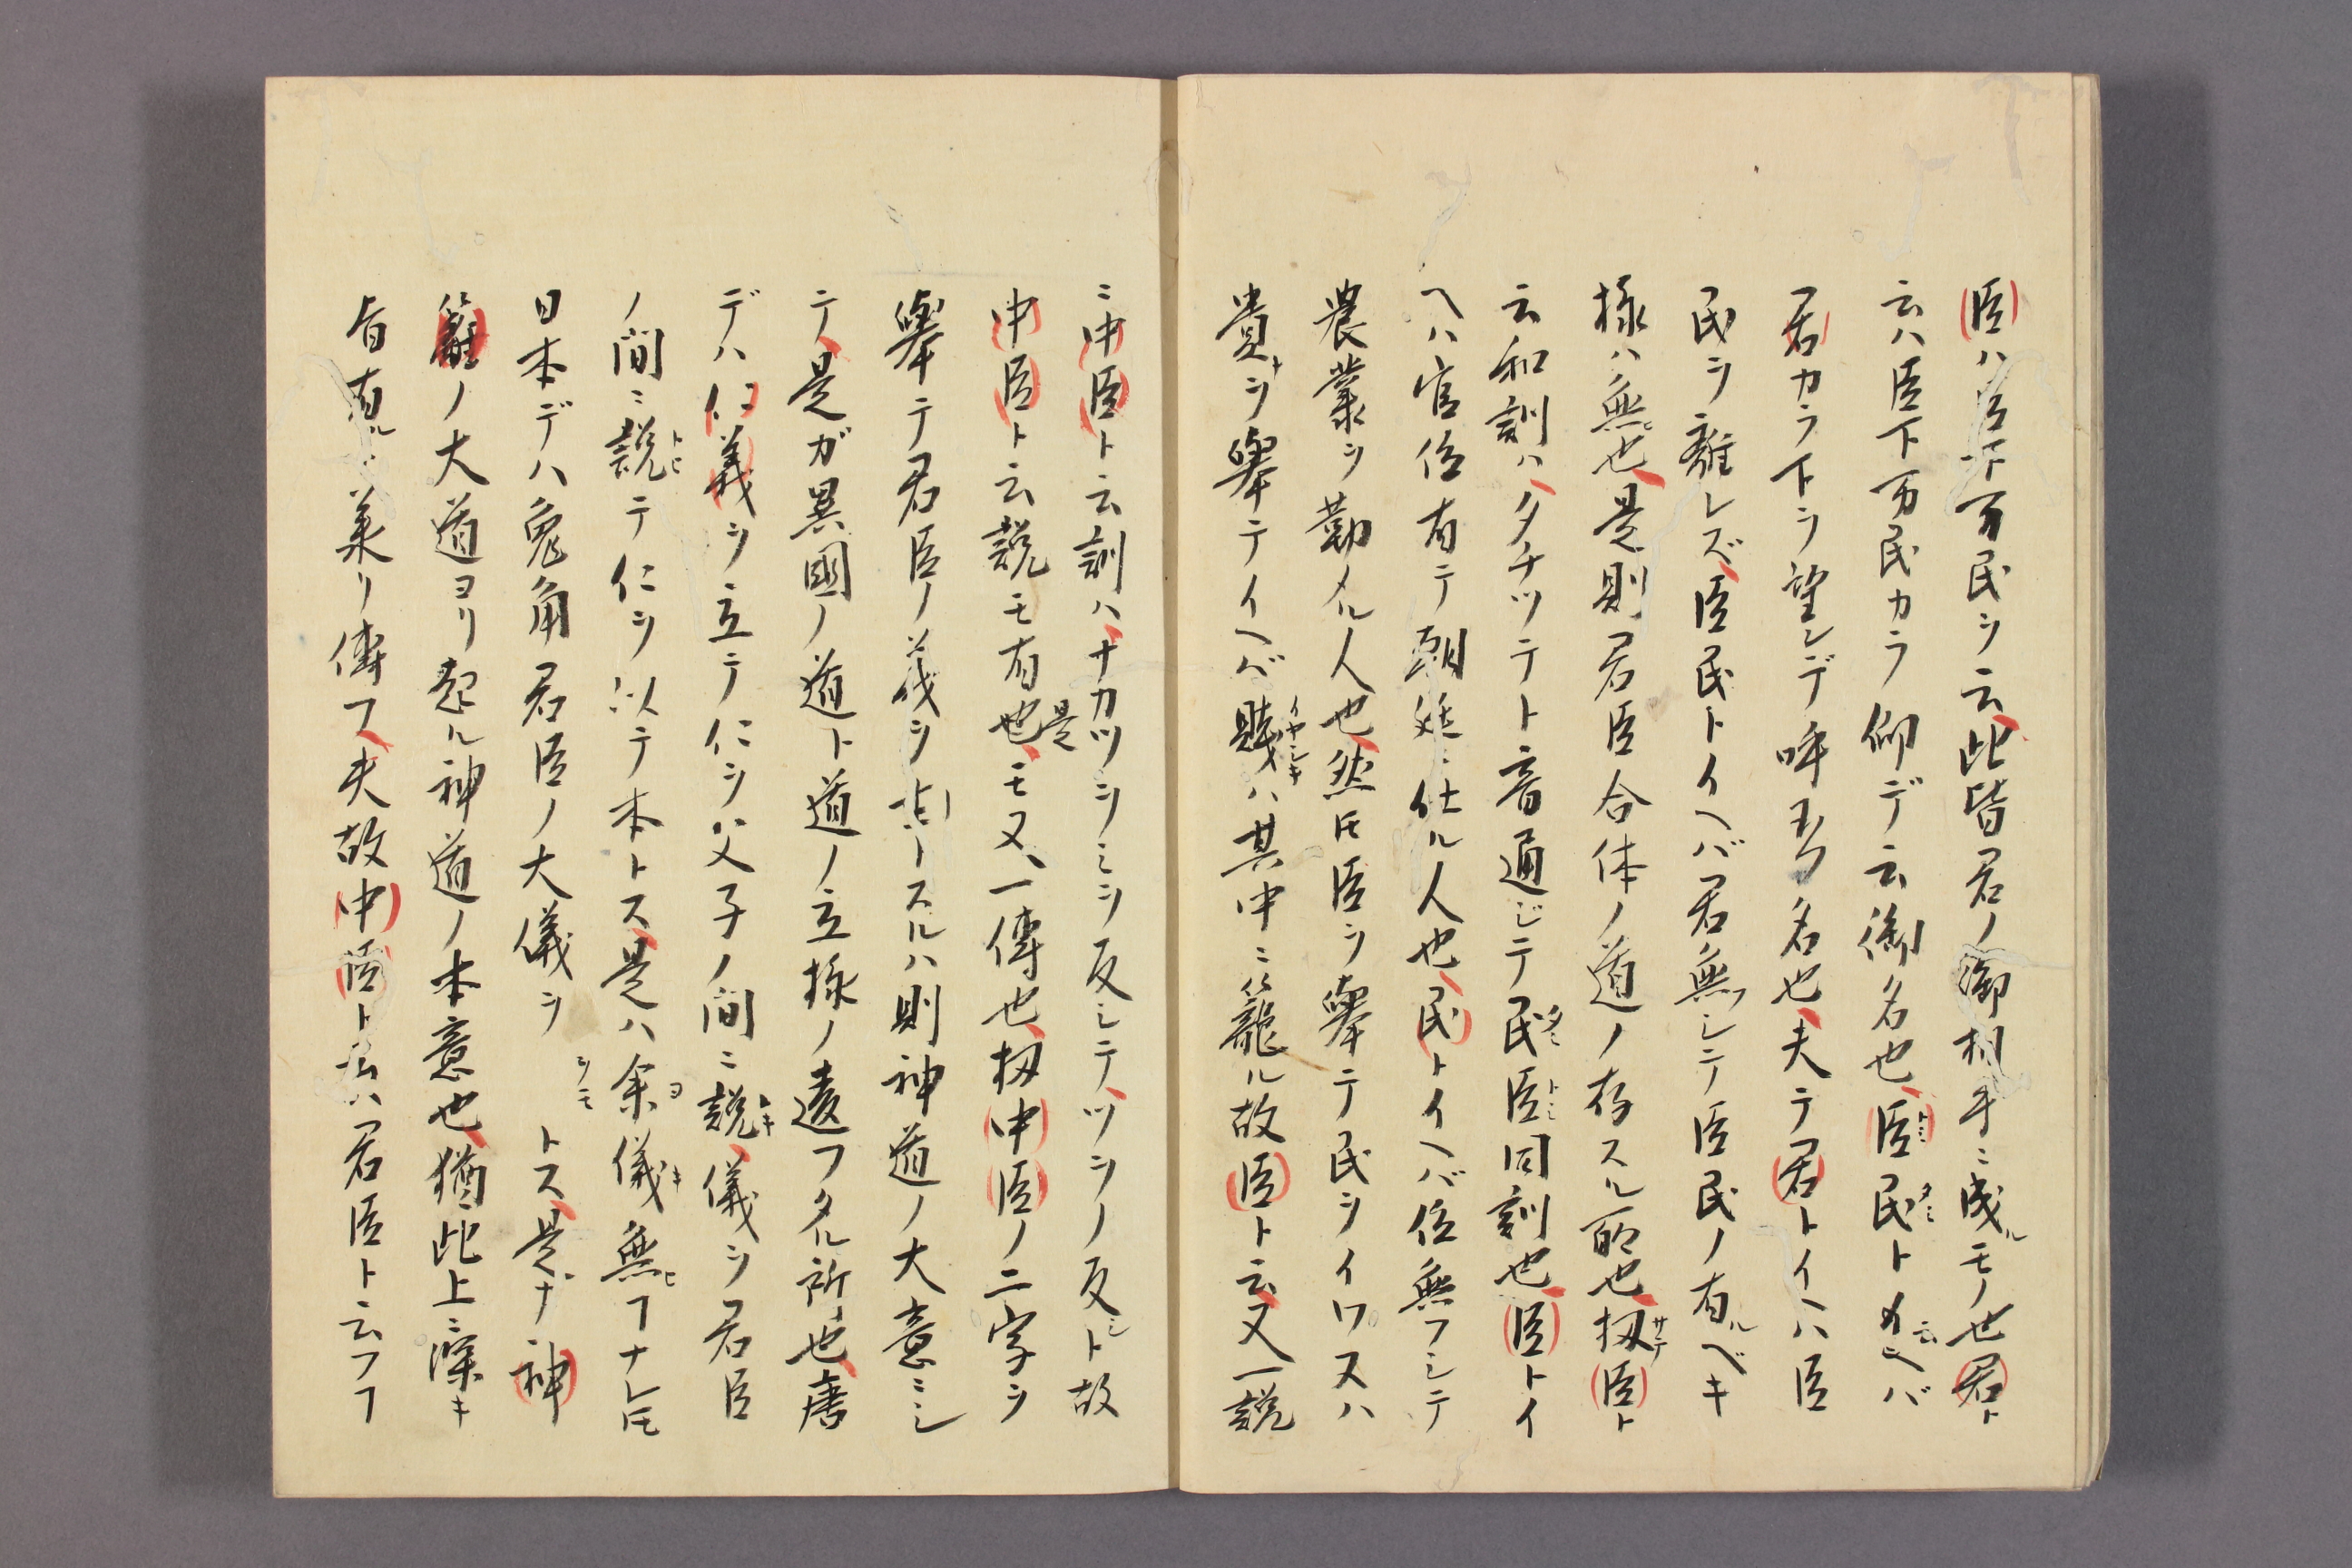 臣ハ臣下万民ヲ云此皆君ノ御相手ニ成ルモノ也君ト
云ハ臣下万民カラ仰デ云御名也臣民ト云ヘバ
君カラ下ヲ望ンデ呼玉フ名也夫テ君トイハ臣
民ヲ離レズ臣民トイヘバ君無フシテ臣民ノ有ルベキ
様ハ無也是則君臣合体ノ道ノ存スル所也扨臣ト
云和訓ハタチツテト音通ジテ民臣同訓也臣トイ
ヘハ官位有テ朝廷ニ仕ル人也民トイヘバ位無フシテ
農業ヲ勤メル人也然ㇳモ臣ヲ舉テ民ヲイワスハ
貴ヲ舉テイヘバ賤ハ其中ニ籠ル故臣ト云又一説
ニ中臣ト云訓ハナカツヲミヲ反シテツヲノ反シト故
中臣ト云説モ有也是モ又一傳也扨中臣ノ二字ヲ
舉テ君臣ノ義ヲ専トスルハ則神道ノ大意ニシ
テ是ガ異國ノ道ト道ノ立様ノ違フタル所也唐
デハ仁義ヲ立テ仁ヲ父子ノ間ニ説儀ヲ君臣
ノ間ニ説テ仁ヲ以テ本トス是ハ余儀無フナレㇳモ
日本デハ兎角君臣ノ大儀ヲ トス是ナ神
籬ノ大道ヨリ起ル神道ノ本意也猶此上ニ深キ
旨有ルヿ 来リ傳フ夫故中臣ト云ハ君臣ト云フヿ